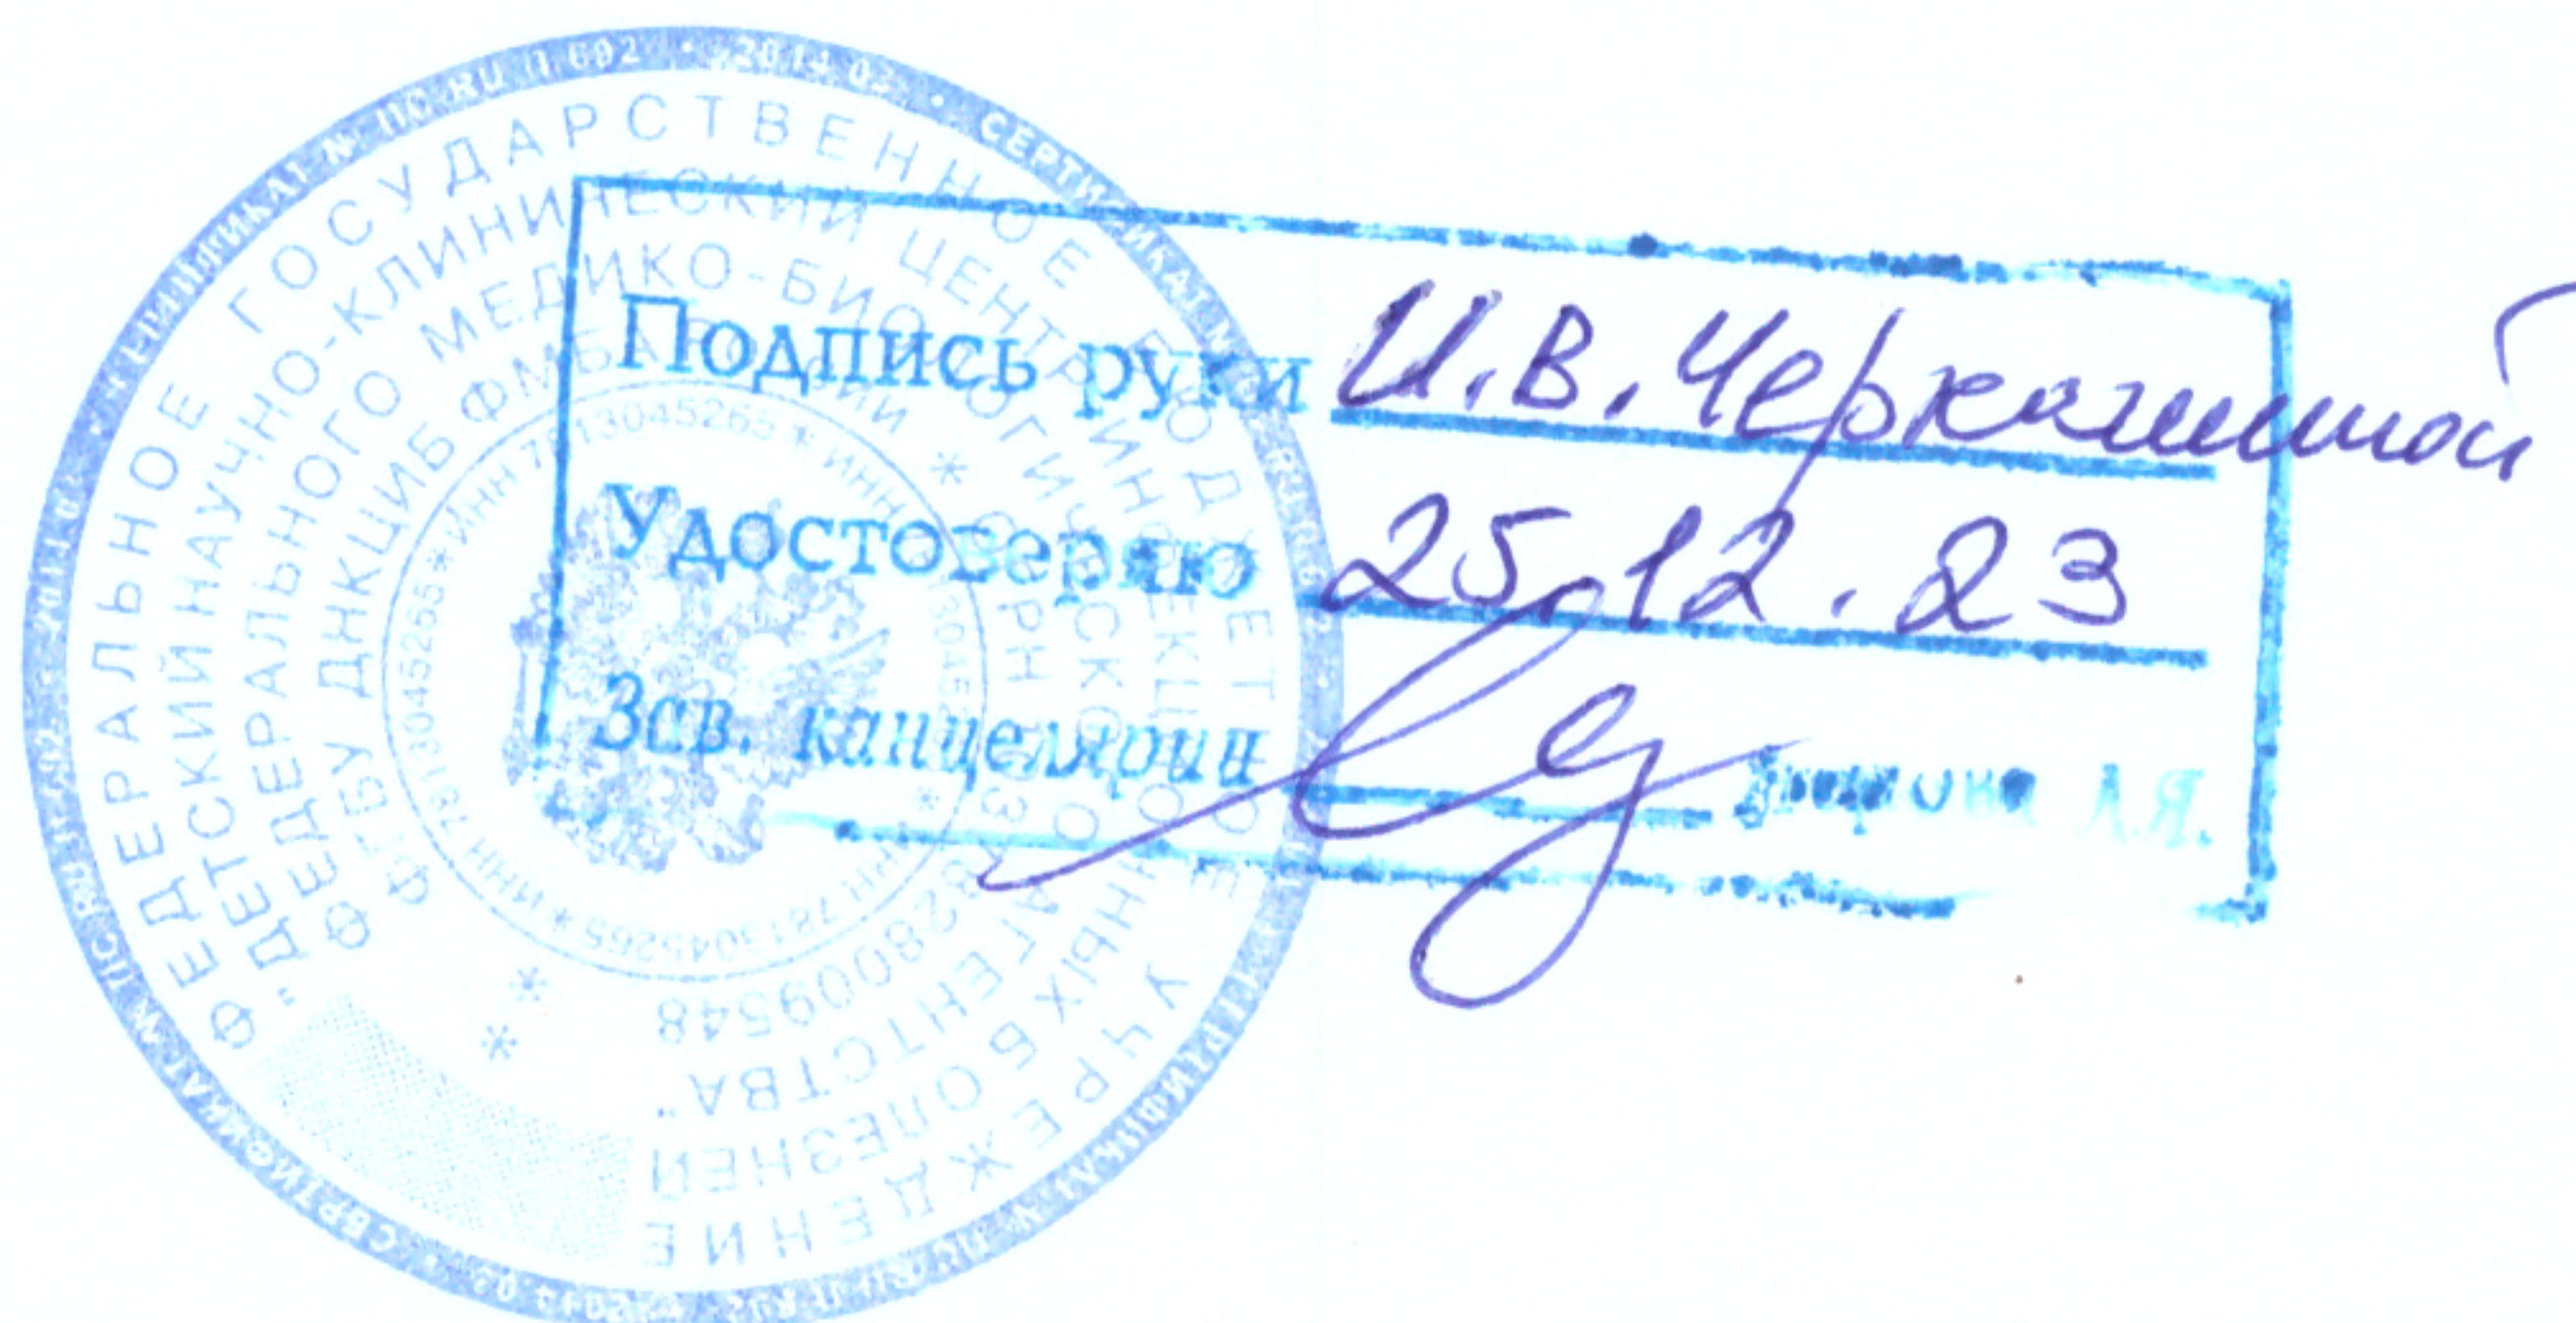 ФЕДЕРАЛЬНОЕ ГОСУДАРСТВЕННОЕ БЮДЖЕТНОЕ УЧРЕЖДЕНИЕ
"ДЕТСКИЙ НАУЧНО-КЛИНИЧЕСКИЙ ЦЕНТР ИНФЕКЦИОННЫХ БОЛЕЗНЕЙ
ФЕДЕРАЛЬНОГО МЕДИКО-БИОЛОГИЧЕСКОГО АГЕНТСТВА"
ФГБУ ДНКЦИБ ФМБА РОССИИ * ОГРН
* ИНН 7813045265 * ИНН 7813045265 * ИНН 7813045265 * ИНН 7813045265
Подпись руки И.В.
Удостоверяю 25.12.23
Зав. канцелярии Л.Я.